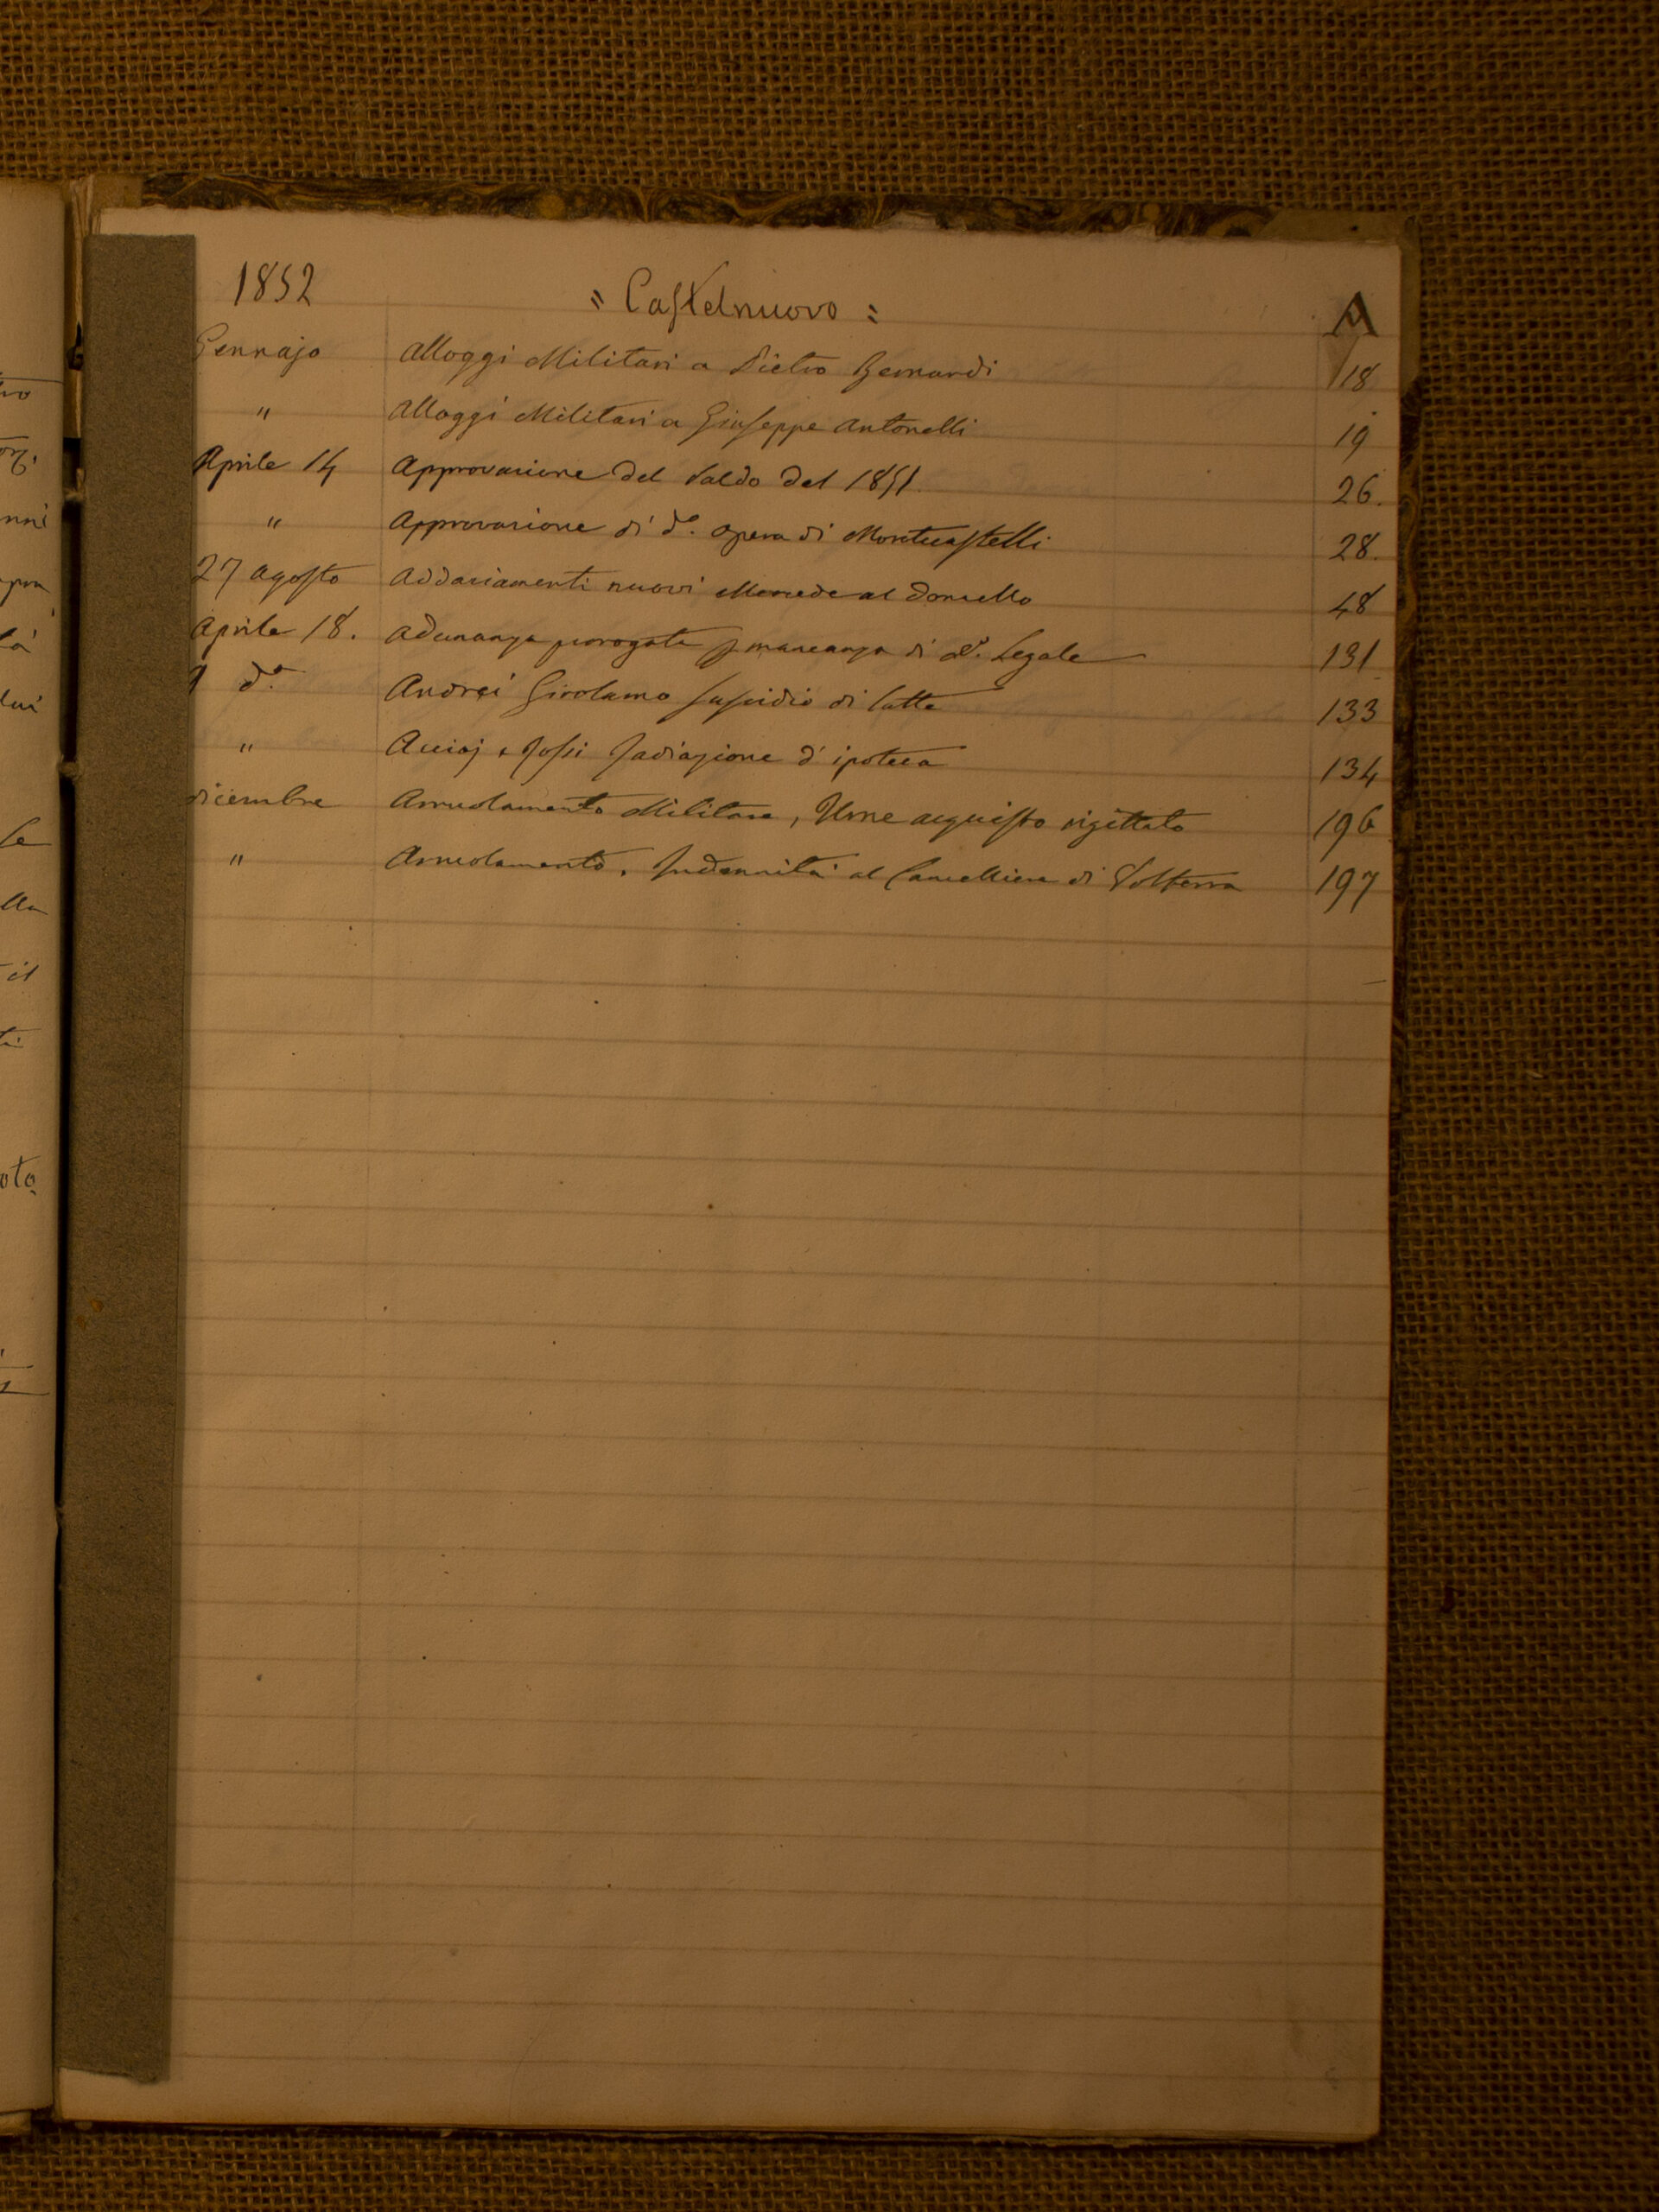 1852 " Castelnuovo = A
Gennajo Alloggi Militari a Pietro Bernardi 18
" Alloggi Militari a Giuseppe Antonelli 19
Aprile 14 Approvazione del Saldo del 1851. 26.
" Approvazione di do. opera di Montecastelli 28.
27 Agosto Addaziamenti nuovi Mercede al Donzello 48
Aprile 18. Adunanza prorogata p mancanza di No. Legale 131
do. Andrei Girolamo sussidio di latte 133
" e Rossi Radiazione d'ipoteca 134
dicembre Arruolamento Militare, Urne acquisto rigettato 196
" Arruolamento. Indennità al Cancelliere di Volterra 197